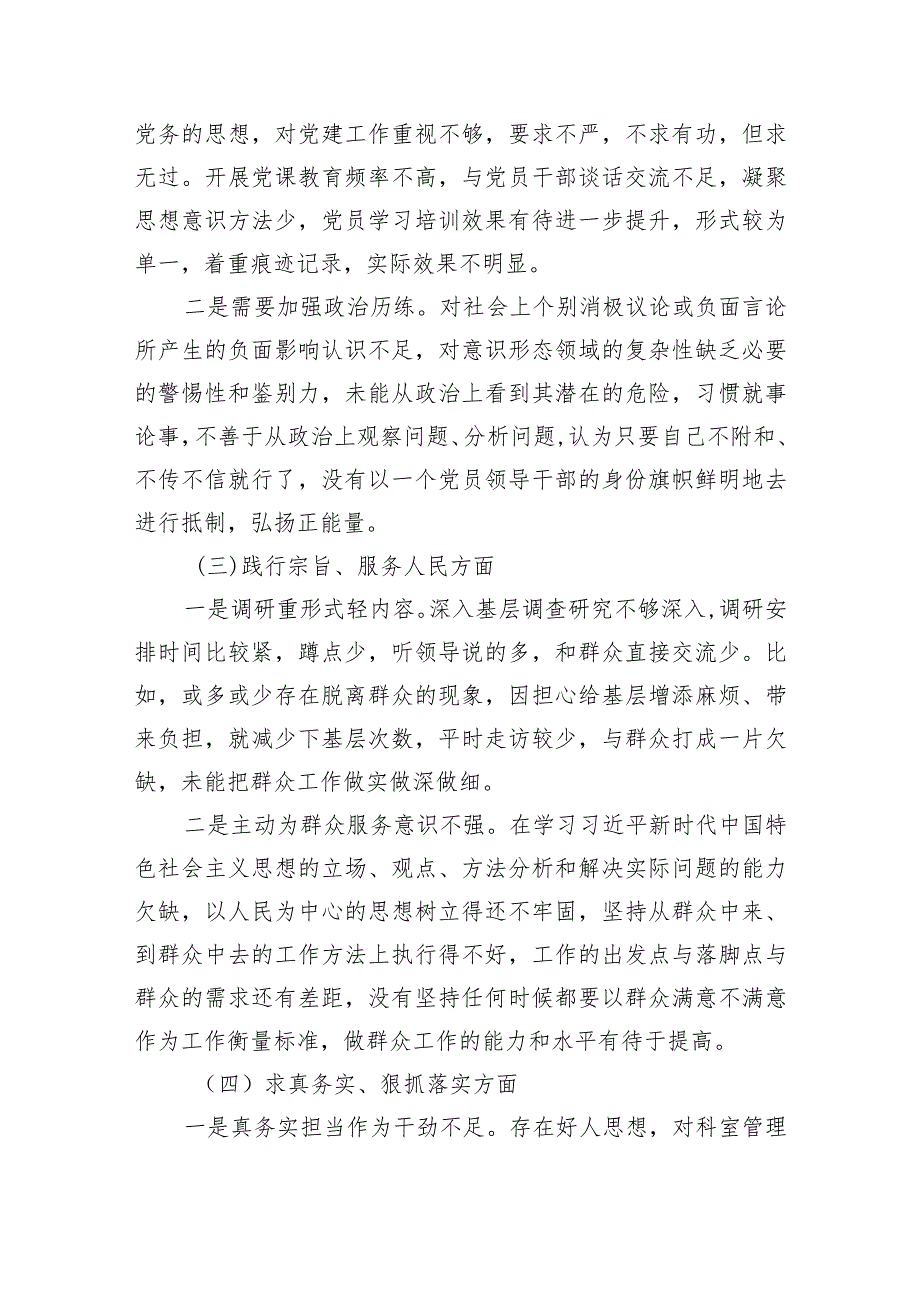 党务的思想，对党建工作重视不够，要求不严，不求有功，但求
无过。开展党课教育频率不高，与党员干部谈话交流不足，凝聚
思想意识方法少，党员学习培训效果有待进一步提升，形式较为
单一，着重痕迹记录，实际效果不明显。
二是需要加强政治历练。对社会上个别消极议论或负面言论
所产生的负面影响认识不足，对意识形态领域的复杂性缺乏必要
的警惕性和鉴别力，未能从政治上看到其潜在的危险，习惯就事
论事，不善于从政治上观察问题、分析问题,认为只要自己不附和、
不传不信就行了，没有以一个党员领导干部的身份旗帜鲜明地去
进行抵制，弘扬正能量。
(三)践行宗旨、服务人民方面
一是调研重形式轻内容。深入基层调查研究不够深入,调研安
排时间比较紧，蹲点少，听领导说的多，和群众直接交流少。比
如，或多或少存在脱离群众的现象，因担心给基层增添麻烦、带
来负担，就减少下基层次数，平时走访较少，与群众打成一片欠
缺，未能把群众工作做实做深做细。
二是主动为群众服务意识不强。在学习习近平新时代中国特
色社会主义思想的立场、观点、方法分析和解决实际问题的能力
欠缺，以人民为中心的思想树立得还不牢固，坚持从群众中来、
到群众中去的工作方法上执行得不好，工作的出发点与落脚点与
群众的需求还有差距，没有坚持任何时候都要以群众满意不满意
作为工作衡量标准，做群众工作的能力和水平有待于提高。
（四）求真务实、狠抓落实方面
一是真务实担当作为干劲不足。存在好人思想，对科室管理